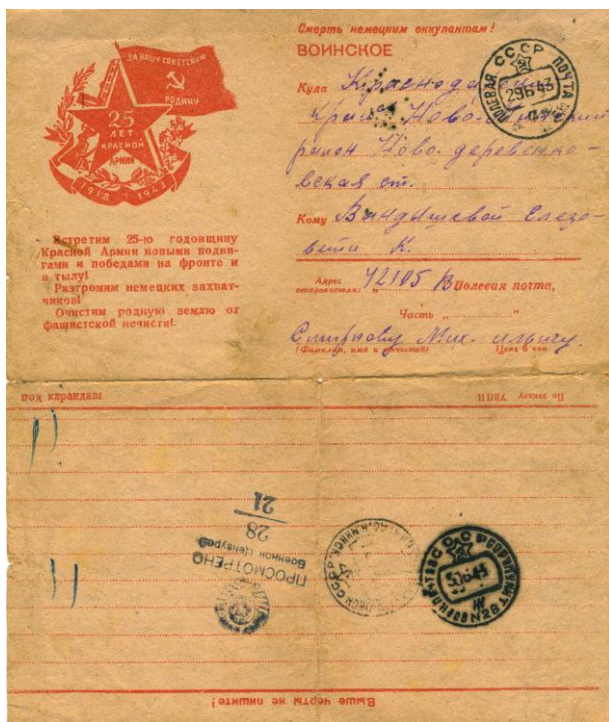 ЗА НАШУ СОВЕТСКУЮ
РОДИНУ
25
ЛЕТ
КРАСНОЙ
АРМИИ
1918 1943
Встретим 25-ю годовщину
Красной Армии новыми подви-
гами и победами на фронте и
в тылу!
Разгромим немецких захват-
чиков!
Очистим родную землю от
фашистской нечисти!
Смерть немецким оккупантам!
ВОИНСКОЕ
Куда Краснодарск
край Ново
район Ново-деревенко-
вская ст.
Кому Вандышевой Елезо-
вети К.
Адрес
отправителя: 42105 В Полевая почта,
Часть „ “
Смирнову Мих. ильичу.
(Фамилия, имя и отчество) Цена 5 коп.
СССР ПОЛЕВАЯ ПОЧТА
29 6 43
под карандаш
По заказу УВПП
21
28
ПРОСМОТРЕНО
Военной Цензурой
СССР
30 6 43
N28
Выше черты не пишите!